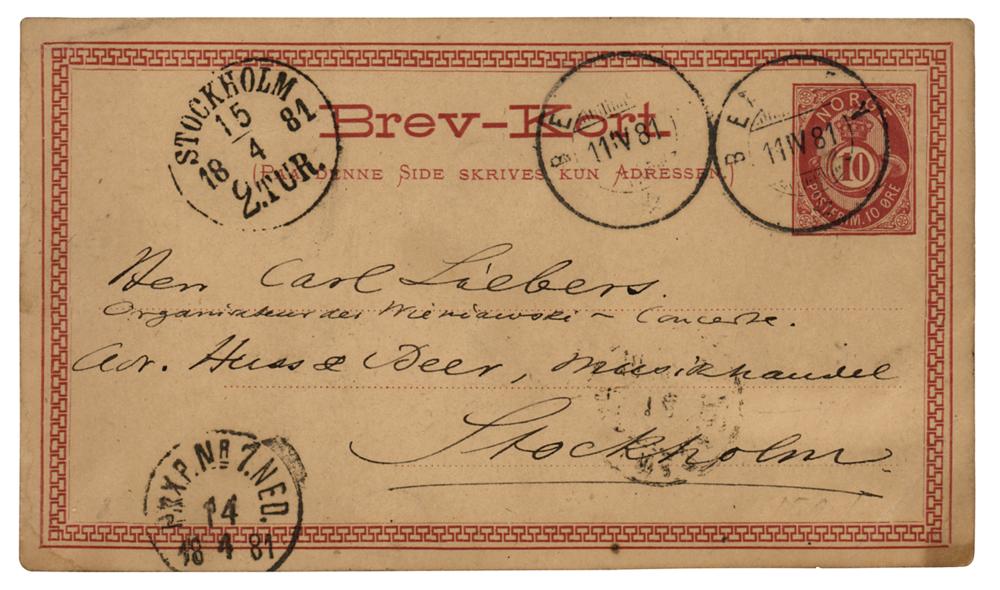 STOCKHOLM
15
18 4 81
2.TUR.
Brev-Kort
DENNE SIDE SKRIVES KUN ADRESSEN.)
11 IV 81
11 IV 81
NORGE
10
POSTFRIM. 10 ØRE
Herr Carl Liebers.
Organisateur der Wieniawski - Concerte.
Adr. Huss & Beer, Musikhandel
Stockholm
P.K.X.P. NR 7. NED.
14
18 4 81